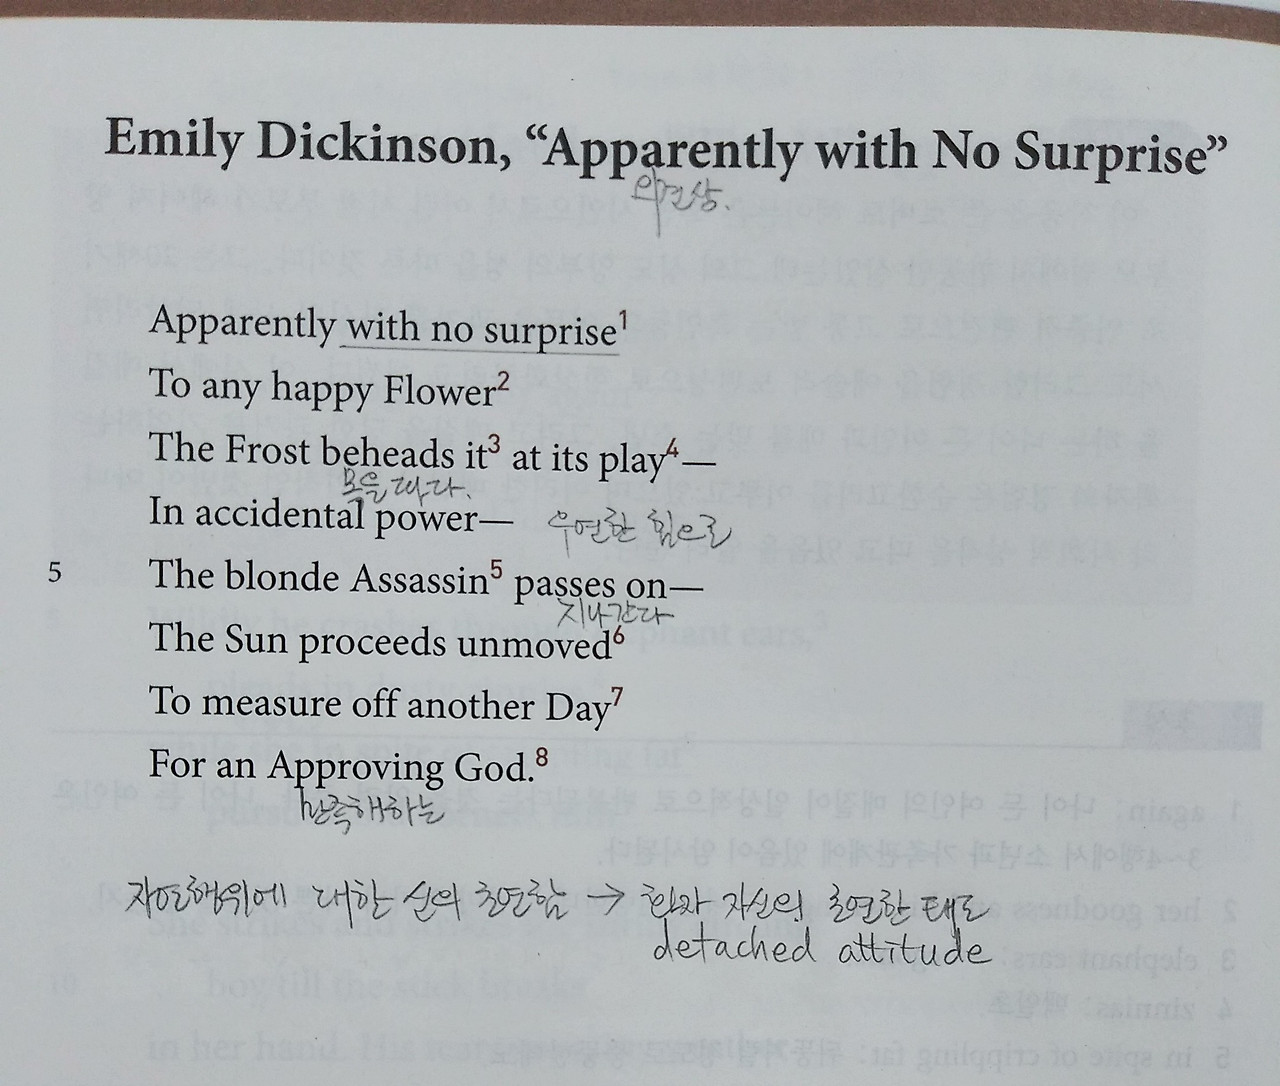 Emily Dickinson, “Apparently with No Surprise”
외견상.
Apparently with no surprise¹
To any happy Flower²
The Frost beheads it³ at its play⁴—
목을 따다.
In accidental power— 우연한 힘으로
5 The blonde Assassin⁵ passes on—
지나간다
The Sun proceeds unmoved⁶
To measure off another Day⁷
For an Approving God.⁸
만족해하는
자연행위에 대한 신의 초연함 → 화자 자신의 초연한 태도
detached attitude